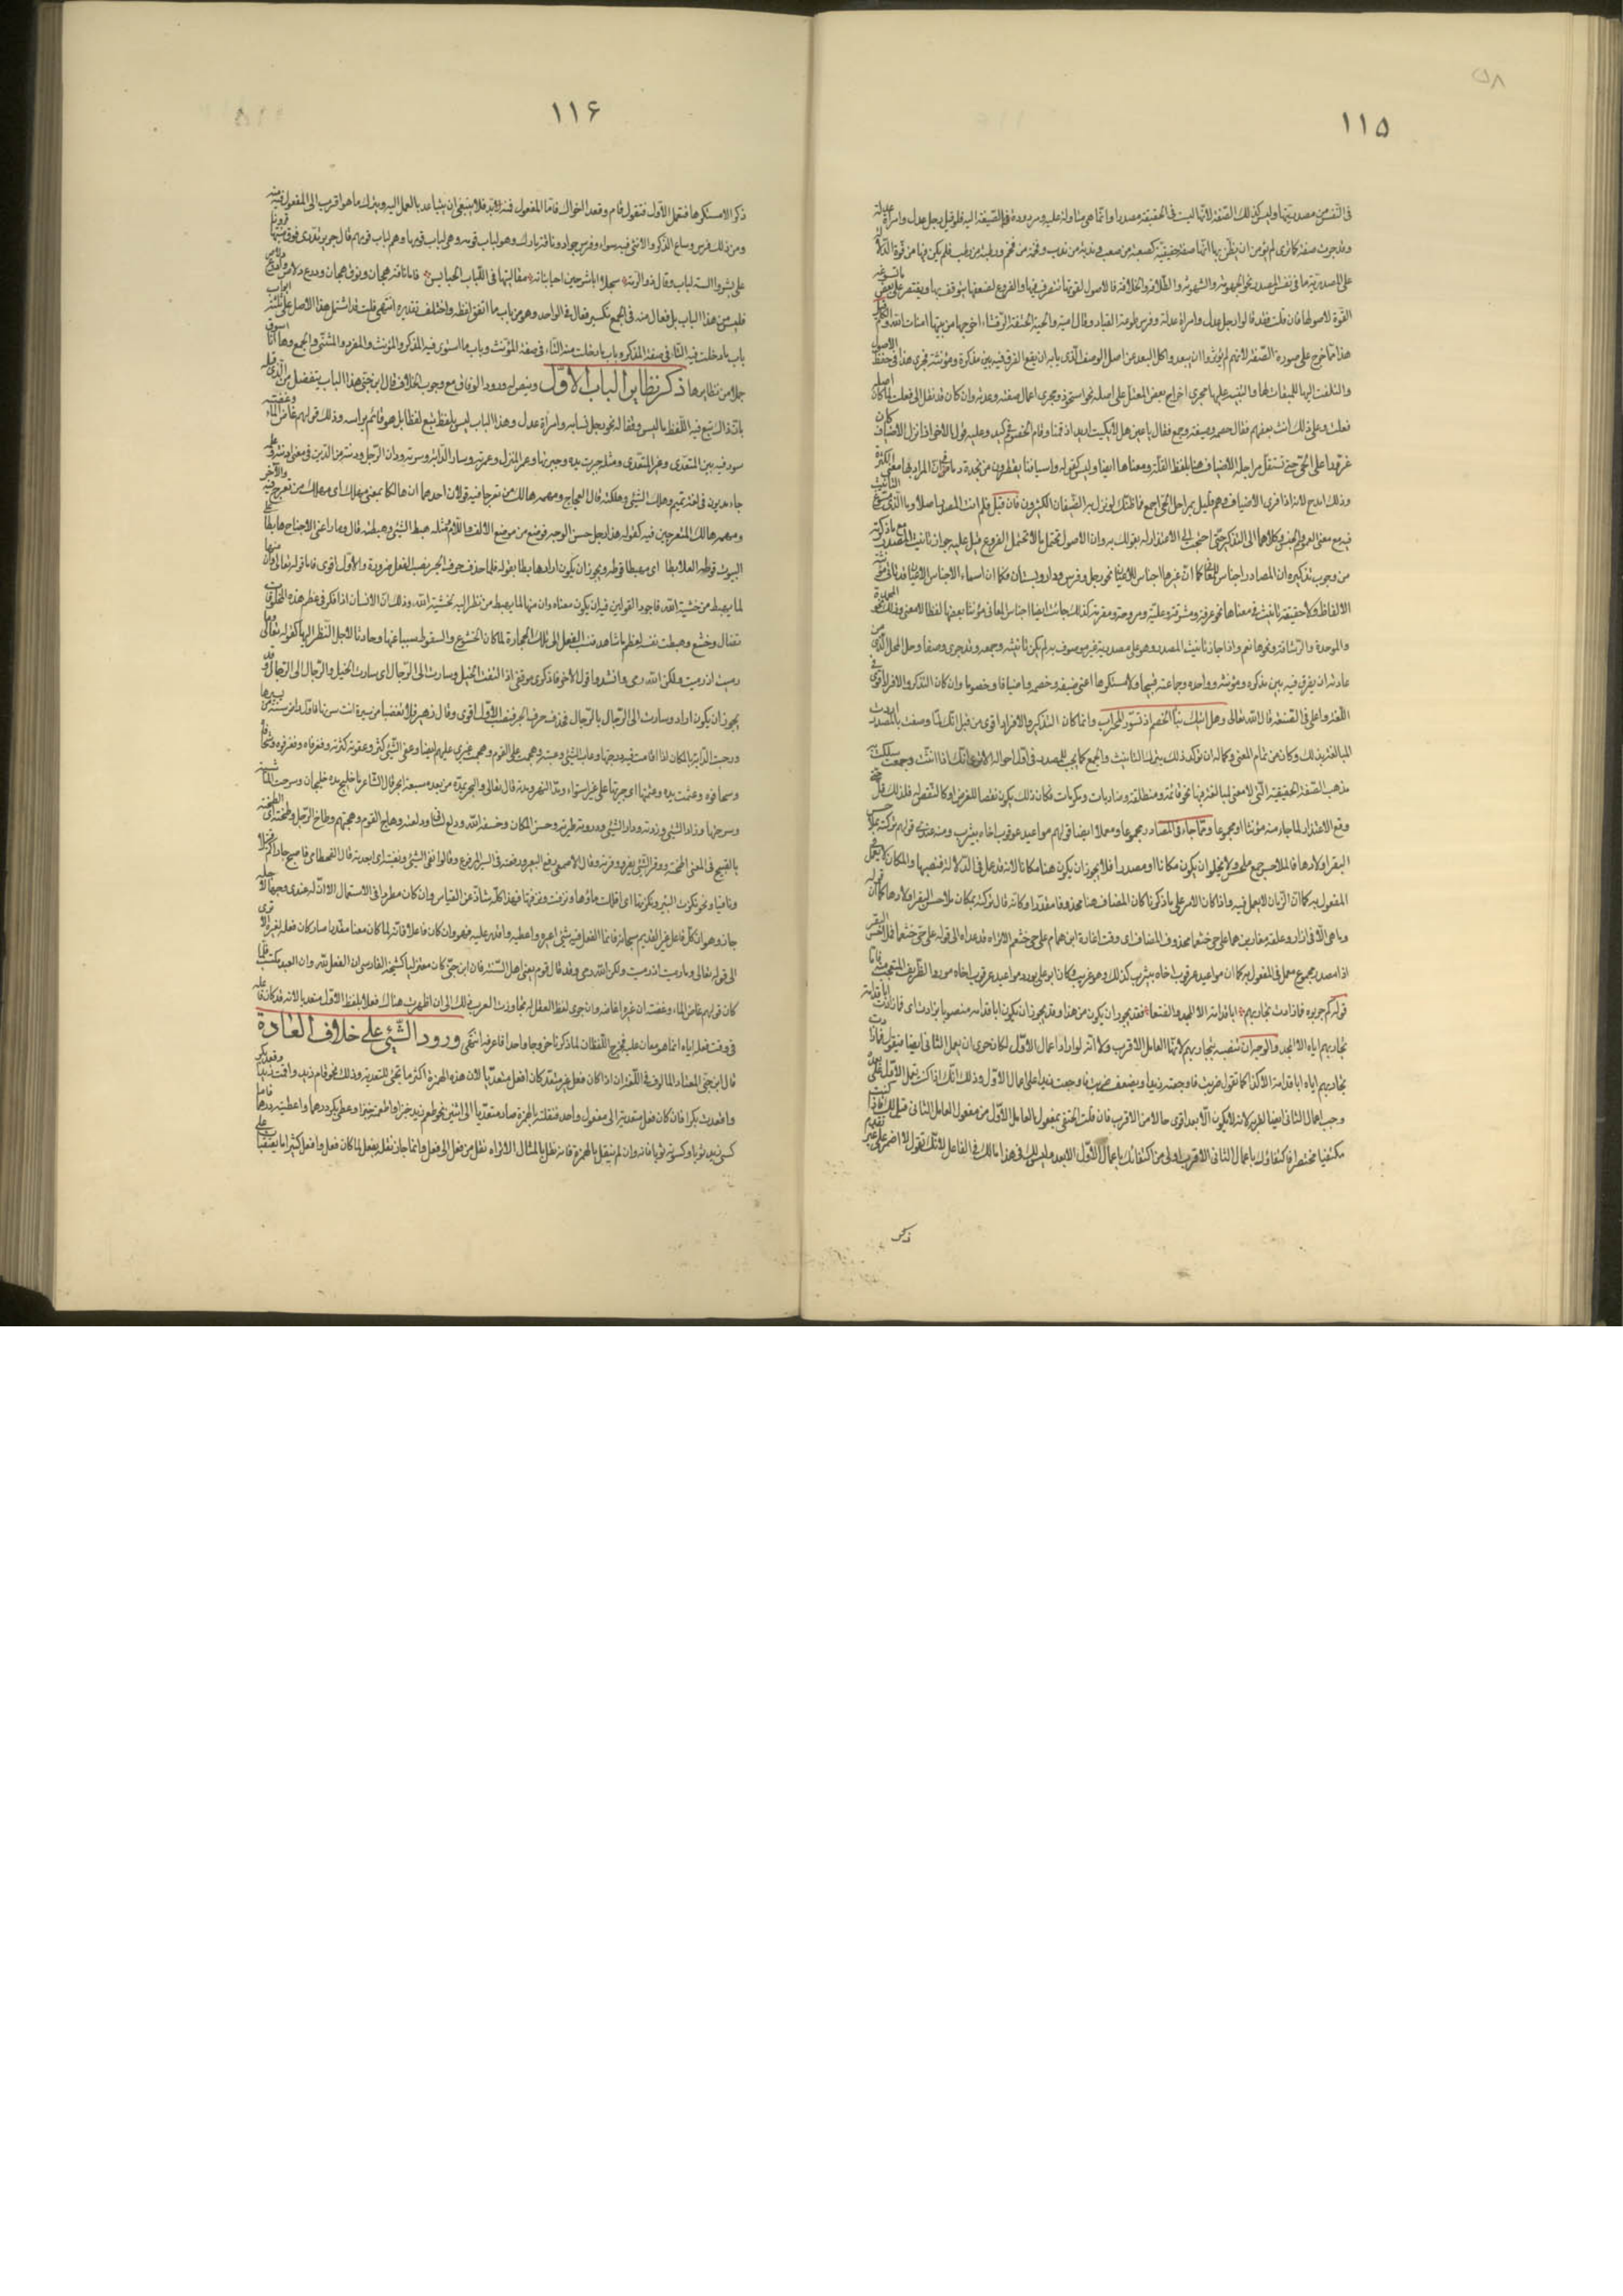 ١١٥
في النفس من مصدريتها وليس كذلك الصفة لانها ليست في الحقيقة مصدرا وانما هي متاولة عليه ومردودة بالصنعة اليه فلو قيل رجل عدل وامراة عدلة
وقد جرت صفة كما ترى لم يؤمن ان يظن بها انها صفة حقيقية كصعبة من صعب وندبة من ندب وفخمة من فخم ورطبة من رطب فلم يكن فيها من قوة الدلالة
على المصدرية ما في نفس المصدر نحو الجهومة والشهومة والطلاقة والخلاقة فالاصول لقوتها يتصرف فيها والفروع لضعفها يتوقف بها ويقتصر على بعض ما تسوغه
القوة لاصولها فان قلت فقد قالوا رجل عدل وامراة عدلة وفرس طوعة القياد وقال امية والحية الحتفة الرقشاء اخرجها من بيتها امنات الله والكلم قيل
هذا مما خرج على صورة الصفة لانهم لم يؤثروا ان يبعدوا كل البعد عن اصل الوصف الذي بابه ان يقع الفرق فيه بين مذكره ومؤنثه فجرى هذا في حفظ الاصول
والتلفت اليها للمباقاة لها والتنبيه عليها مجرى اخراج بعض المعتل على اصله نحو استحوذ ومجرى اعمال صغته وعدته وان كان قد نقل الى فعلت لما كان اصله
فعلت وعلى ذلك انث بعضهم فقال خصمة وضيفة وجمع فقال يا عين هلا بكيت اربد اذ قمنا وقام الخصوم في كبد وعليه قول الاخر اذا نزل الاضياف كان
عذورا على الحي حتى تستقل مراجله الاضياف هنا بلفظ القلة ومعناها ايضا وليس كقوله واسيافنا يقطرن من نجدة دما في ان المراد بها معنى الكثرة
وذلك امدح لانه اذا قرى الاضياف وهم قليل بمراجل الحي اجمع فما ظنك لو نزل به الضيفان الكثيرون فان قيل فلم انث المصدر اصلا وما الذي سوغ التانيث
فيه مع معنى العموم والجنس وكلاهما الى التذكير حتى احتجت الى الاعتذار له بقولك به وان الاصول تحتمل ما لا تحتمل الفروع قيل عليه جواز تانيث المصدر مع ما ذكرته
من وجوب تذكيره ان المصادر اجناس للمعاني كما ان غيرها اجناس للاعيان نحو رجل وفرس ودار وبستان فكما ان اسماء الاجناس الاعيان قد تاتي مؤنثة
الالفاظ ولا حقيقة تانيث في معناها نحو غرفة ومشرقة وعلية ومروحة ومقرمة كذلك جاءت ايضا اجناس المعاني مؤنثا بعضها لفظا لا معنى وذلك نحو المحمدة
والموجدة والرشاقة ونحوها نعم واذا جاز تانيث المصدر وهو على مصدريته غير موصوف به لم يكن تانيثه وجمعه وقد جرى وصفا وحل المحل الذي من
عادته ان يفرق فيه بين مذكره ومؤنثه وواحده وجماعته قبيحا ولا مستكرها اعني ضيفة وخصمة واضيافا وخصوما وان كان التذكير والافراد اقوى في
اللغة واعلى في الصنعة قال الله تعالى وهل اتيك نبأ الخصم اذ تسوروا المحراب وانما كان التذكير والافراد اقوى من قبل انك لما وصفت بالمصدر اردت
المبالغة بذلك وكان من تمام المعنى وكماله ان تؤكد ذلك بترك التانيث والجمع كما يجب للمصدر في اول احواله الا ترى انك اذا انثت وجمعت سلكت
مذهب الصفة الحقيقية التي لا معنى للمبالغة فيها نحو قائمة ومنطلقة وضاربات ومكرمات فكان ذلك يكون نقضا للغرض او كالنقض له فلذلك قل حتى
وقع الاعتذار لما جاء منه مؤنثا او مجموعا ومما جاء من المصادر مجموعا ومعملا ايضا قولهم مواعيد عرقوب اخاه بيثرب ومنه عندي قولهم تركته بملاحس
البقر اولادها فالملاحس جمع ملحس ولا يخلو ان يكون مكانا او مصدرا فلا يجوز ان يكون هنا مكانا لانه قد عمل في الاولاد فنصبها والمكان لا يعمل في
المفعول به كما ان الزمان لا يعمل فيه واذا كان الامر على ما ذكرنا كان المضاف هنا محذوفا مقدرا وكانه قال تركته بمكان ملاحس البقر اولادها كما ان قوله
وما هي الا في ازار وعلقة مغار ابن همام على حي خثعما محذوف المضاف اي وقت اغارة ابن همام على حي خثعم الا تراه قد عداه الى قوله على حي خثعما فملاحس البقر
اذا مصدر مجموع معمل في المفعول به كما ان مواعيد عرقوب اخاه بيثرب كذلك وهو غريب وكان ابو علي يورد مواعيد عرقوب اخاه مورد الظريف المتعجب منه فاما
قوله كم جربوه فما زادت تجاربهم ابا قدامة الا المجد والفنعا فقد يجوز ان يكون من هذا وقد يجوز ان يكون ابا قدامة منصوبا بزادت اي فما زادت ابا قدامة
تجاربهم اياه الا المجد والوجه ان تنصبه بتجاربهم لانها العامل الاقرب ولانه لو اراد اعمال الاول لكان حرى ان يعمل الثاني ايضا فيقول فما زادت
تجاربهم اياه ابا قدامة الا كذا كما تقول ضربت فاوجعته زيدا ويضعف ضربت فاوجعت زيدا على اعمال الاول وذلك انك اذا كنت تعمل الاول على بعده
وجب اعمال الثاني ايضا لقربه لانه لا يكون الابعد اقوى حالا من الاقرب فان قلت اكتفي بمفعول العامل الاول من مفعول العامل الثاني قيل لك فاذا كنت
مكتفيا مختصرا فاكتفاؤك باعمال الثاني الاقرب اولى من اكتفائك باعمال الاول الابعد وليس لك في هذا مالك في الفاعل لانك تقول لا اضمر على غير تقدم
ذكر
١١۶
ذكر الا مستكرها فتعمل الاول فتقول قام وقعدا اخواك فاما المفعول فمنه بد فلا ينبغي ان يتباعد بالعمل اليه ويترك ما هو اقرب الى المعمول فيه منه
ومن ذلك فرس وساع الذكر والانثى فيه سواء وفرس جواد وناقة ضامر وهو لباب قومه وهي لباب قومها وهم لباب قومهم قال جرير تدري فوق متنيها قرونا
على بشر وآنسة لباب وقال ذو الرمة سبحلا ابا شرخين احيا بناته مقاليتها فهي اللباب الحبائس فاما ناقة هجان ونوق هجان ودرع دلاص وادرع دلاص
فليس من هذا الباب بل فعال منه في الجمع تكسير فعال في الواحد وهو من باب ما اتفق لفظه واختلف تقديره انتهى قلت قد اشتمل هذا الاصل على ثلثة ابواب
باب ما دخلت فيه التاء في صفة المذكر وباب ما دخلت منه التاء في صفة المؤنث وباب ما استوى فيه المذكر والمؤنث والمفرد والمثنى والجمع وها انا اسوق
جملا من نظايرها ذكر نظاير الباب الاول
ورود الوفاق مع وجود الخلاف قال ابن جني هذا الباب ينفصل من الذي قبله
بان ذاك تبع فيه اللفظ ما ليس وفقا له نحو رجل نسابة وامراة عدل وهذا الباب ليس بلفظ تبع لفظا بل هو قائم براسه وذلك قولهم غاض الماء وغضته
سووا فيه بين المتعدي وغير المتعدي ومثله جبرت يده وجبرتها وعمر المنزل وعمرته وسار الدابة وسرته ودان الرجل ودنته من الدين في معنى ادنته وعليه
جاء مديون في لغة تميم وهلك الشيء وهلكته قال العجاج ومهمه هالك من تعرجا فيه قولان احدهما ان هالكا بمعنى مهلك اي مهلك من تعرج فيه والاخر
ومهمه هالك المتعرجين فيه كقوله هذا رجل حسن الوجه فوضع من موضع الالف واللام مثله هبط الشيء وهبطته قال وما راعني الا جناح هابطا على
البيوت قوطه العلابطا اي مهبطا قوطه ويجوز ان يكون اراد هابطا بقوطه فلما حذف حرف الجر نصب الفعل ضرورة والاول اقوى فاما قوله تعالى وان منها
لما يهبط من خشية الله فاجود القولين فيه ان يكون معناه وان منها لما يهبط من نظر اليه لخشية الله وذلك ان الانسان اذا فكر في عظم هذه المخلوقات
تضاءل وخشع وهبطت نفسه لعظم ما شاهد فنسب الفعل الى تلك الحجارة لما كان الخشوع والسقوط مسببا عنها وحادثا لاجل النظر اليها كقوله تعالى وما
رميت اذ رميت ولكن الله رمى وانشدوا قول الاخر فاذكري موقفي اذا التقت الخيل وسارت الى الرجال الرجالا اي سارت الخيل الرجال الى الرجال وقد
يجوز ان يكون اراد وسارت الى الرجال بالرجال فحذف حرف الجر فنصب والاول اقوى وقال زهير فلا تغضبا من سيرة انت سرتها فاول راض سنة من يسيرها
ورجنت الدابة بالمكان اذا اقامت فيه ورجنتها وعاب الشيء وعبته وهجمت على القوم وهجمت غيري عليهم ايضا وعفا الشيء كثر وعفوته كثرته وفغر فاه وفغر فوه وشحا فاه
وشحا فوه وعثمت يده وعثمتها اي جبرتها على غير استواء ومد النهر ومده قال تعالى والبحر يمده من بعده سبعة ابحر قال الشاعر ماء خليج مده خليجان وسرحت الماشية
وسرحتها وزاد الشيء وزدته وذرا الشيء وذروته طيرته وخسف المكان وخسفه الله ودلع اللسان ودلعته وهاج القوم وهجتهم وطاخ الرجل وطخته اي لطخته
بالقبيح في المعنى اطخته ووفر الشيء يفر ووفرته وقال الاصمعي رفع البعير ورفعته في السير المرفوع وقالوا نفى الشيء ونفيته اي ابعدته قال القطامي فاصبح جاراكم قتيلا
ونافيا ونحوه نكزت البئر ونكزتها اي اقللت ماءها ونزفت ونزفتها فهذا كله شاذ عن القياس وان كان مطردا في الاستعمال الا ان له عندي وجها لاجله
جاز وهو ان كل فاعل غير القديم سبحانه فانما الفعل فيه شيء اعيره واعطيه واقدر عليه فهو وان كان فاعلا فانه لما كان معانا مقدرا صار كان فعله لغيره الا ترى
الى قوله تعالى وما رميت اذ رميت ولكن الله رمى وقد قال قوم يعني اهل السنة فان ابن جني كان معتزليا كشيخه الفارسي ان الفعل لله وان العبد مكتسبه فلما
كان قولهم غاض الماء وغضته ان غيره اغاضه وان جرى لفظ الفعل له تجاوزت العرب ذلك الى ان اظهرت هناك فعلا بلفظ الاول متعديا لانه قد كان فاعله
في وقت فعله اياه انما هو معان عليه فخرج اللفظان لما ذكرنا خروجا واحدا فاعرفه انتهى ورود الشيء على خلاف العادة
قال ابن جني المعتاد المالوف في اللغة ان اذا كان فعل غير متعد كان افعل متعديا لان هذه الهمزة اكثر ما تجئ للتعدية وذلك نحو قام زيد واقمت زيدا وقعد بكر
واقعدت بكرا فان كان فعل متعديا الى مفعول واحد فنقلته بالهمزة صار متعديا الى اثنين نحو طعم زيد خبزا واطعمته خبزا وعطى بكر درهما واعطيته درهما فاما
كسي زيد ثوبا وكسوته ثوبا فانه وان لم ينقل بالهمزة فانه نقل بالمثال الا تراه نقل من فعل الى فعل وانما جاز نقله بفعل لما كان فعل وافعل كثيرا ما يعتقبان على